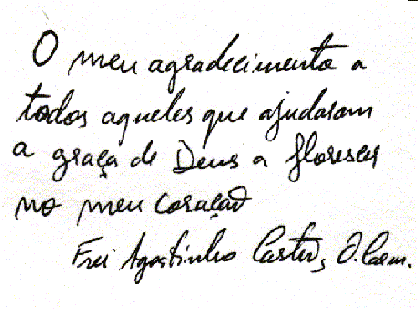 O meu agradecimento a
todos aqueles que ajudaram
a graça de Deus a florescer
no meu coração
Frei Agostinho Castro, O.Carm.